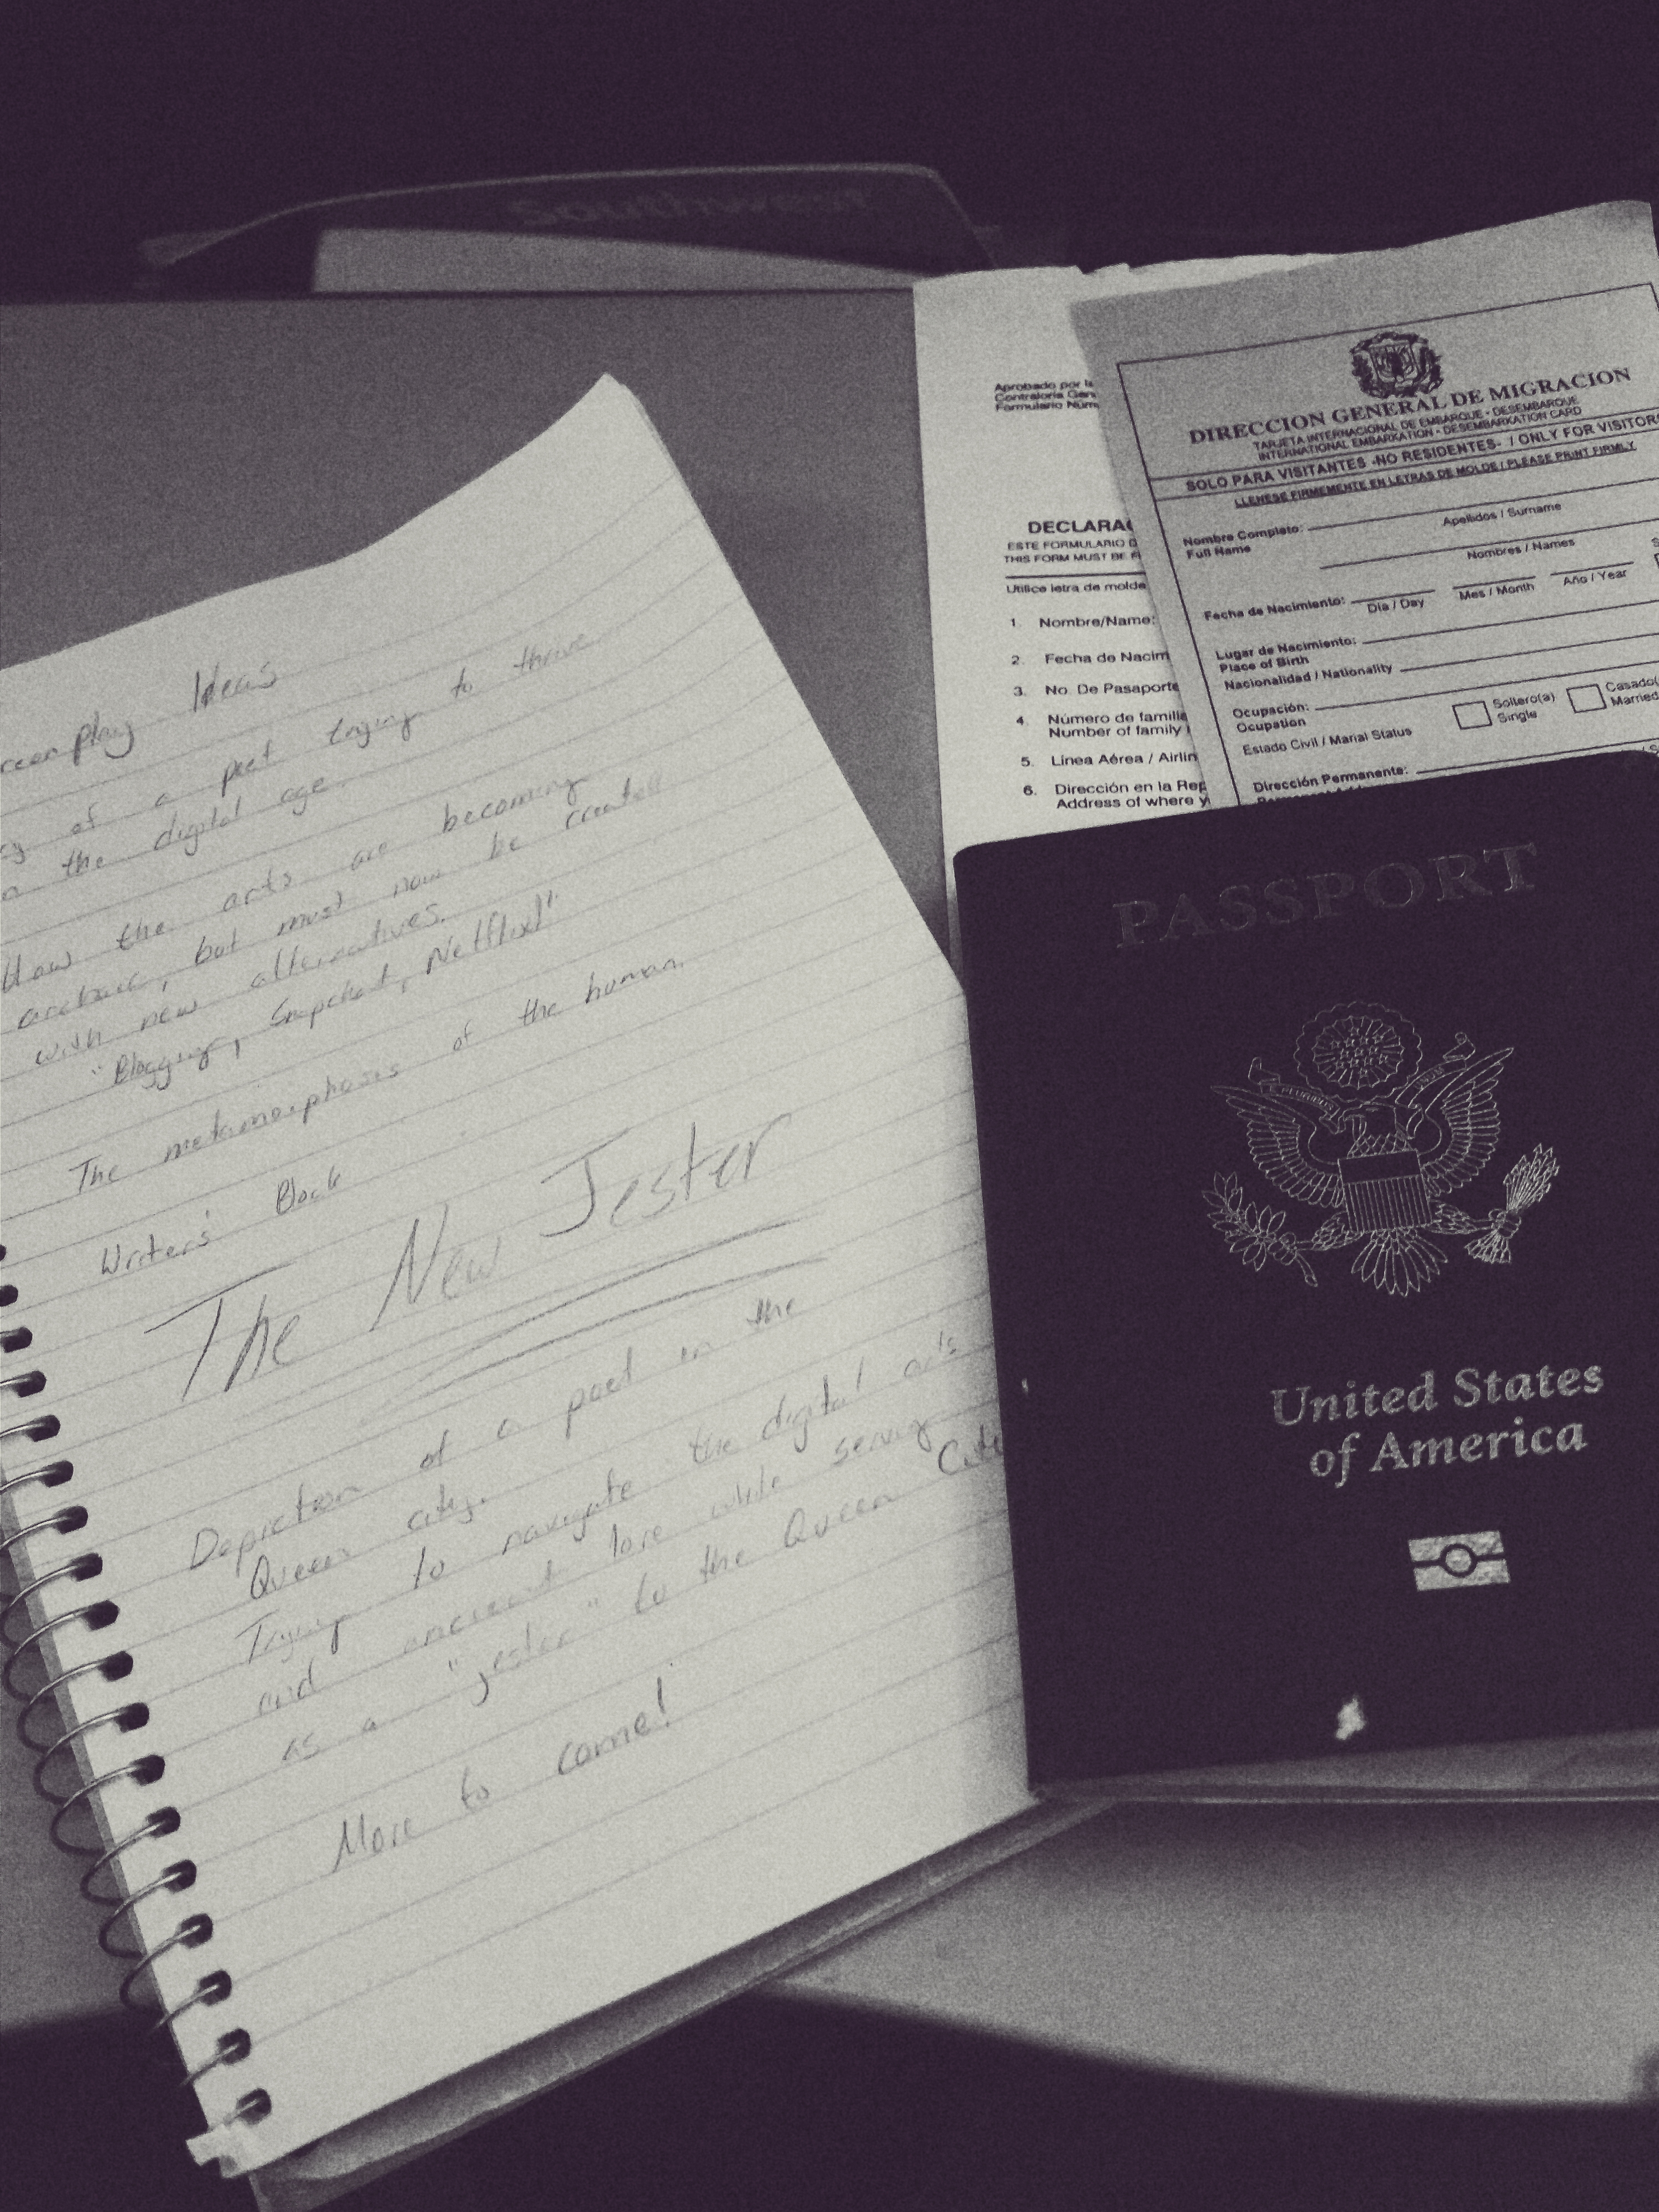 Ideas
of a poet trying to thrive
the digital age.
How the arts are becoming
archaic, but must now be created
with new alternatives.
"Blogging, Snapchat, Netflix"
The metamorphosis of the human.
Writers' Block
The New Jester
Depiction of a poet in the
Queen city.
Trying to navigate the digital ads
and ancient lore while serving
as a "jester" to the Queen
More to come!
Aprobado por la
Contraloría Gen
Formulario Núm
DECLARAC
ESTE FORMULARIO D
THIS FORM MUST BE F
Utilice letra de molde
1. Nombre/Name:
2. Fecha de Nacim
3. No. De Pasaporte
4. Número de familia
Number of family
5. Línea Aérea / Airlin
6. Dirección en la Rep
Address of where y
DIRECCION GENERAL DE MIGRACION
TARJETA INTERNACIONAL DE EMBARQUE - DESEMBARQUE
INTERNATIONAL EMBARKATION - DESEMBARKATION CARD
SOLO PARA VISITANTES -NO RESIDENTES- / ONLY FOR VISITORS
LLENESE FIRMEMENTE EN LETRAS DE MOLDE / PLEASE PRINT FIRMLY
Nombre Completo:
Full Name
Apellidos / Surname
Nombres / Names
Fecha de Nacimiento:
Día / Day Mes / Month Año / Year
Lugar de Nacimiento:
Place of Birth
Nacionalidad / Nationality
Ocupación:
Ocupation
Estado Civil / Marial Status
Soltero(a)
Single
Casado(
Married
Dirección Permanente:
PASSPORT
United States
of America